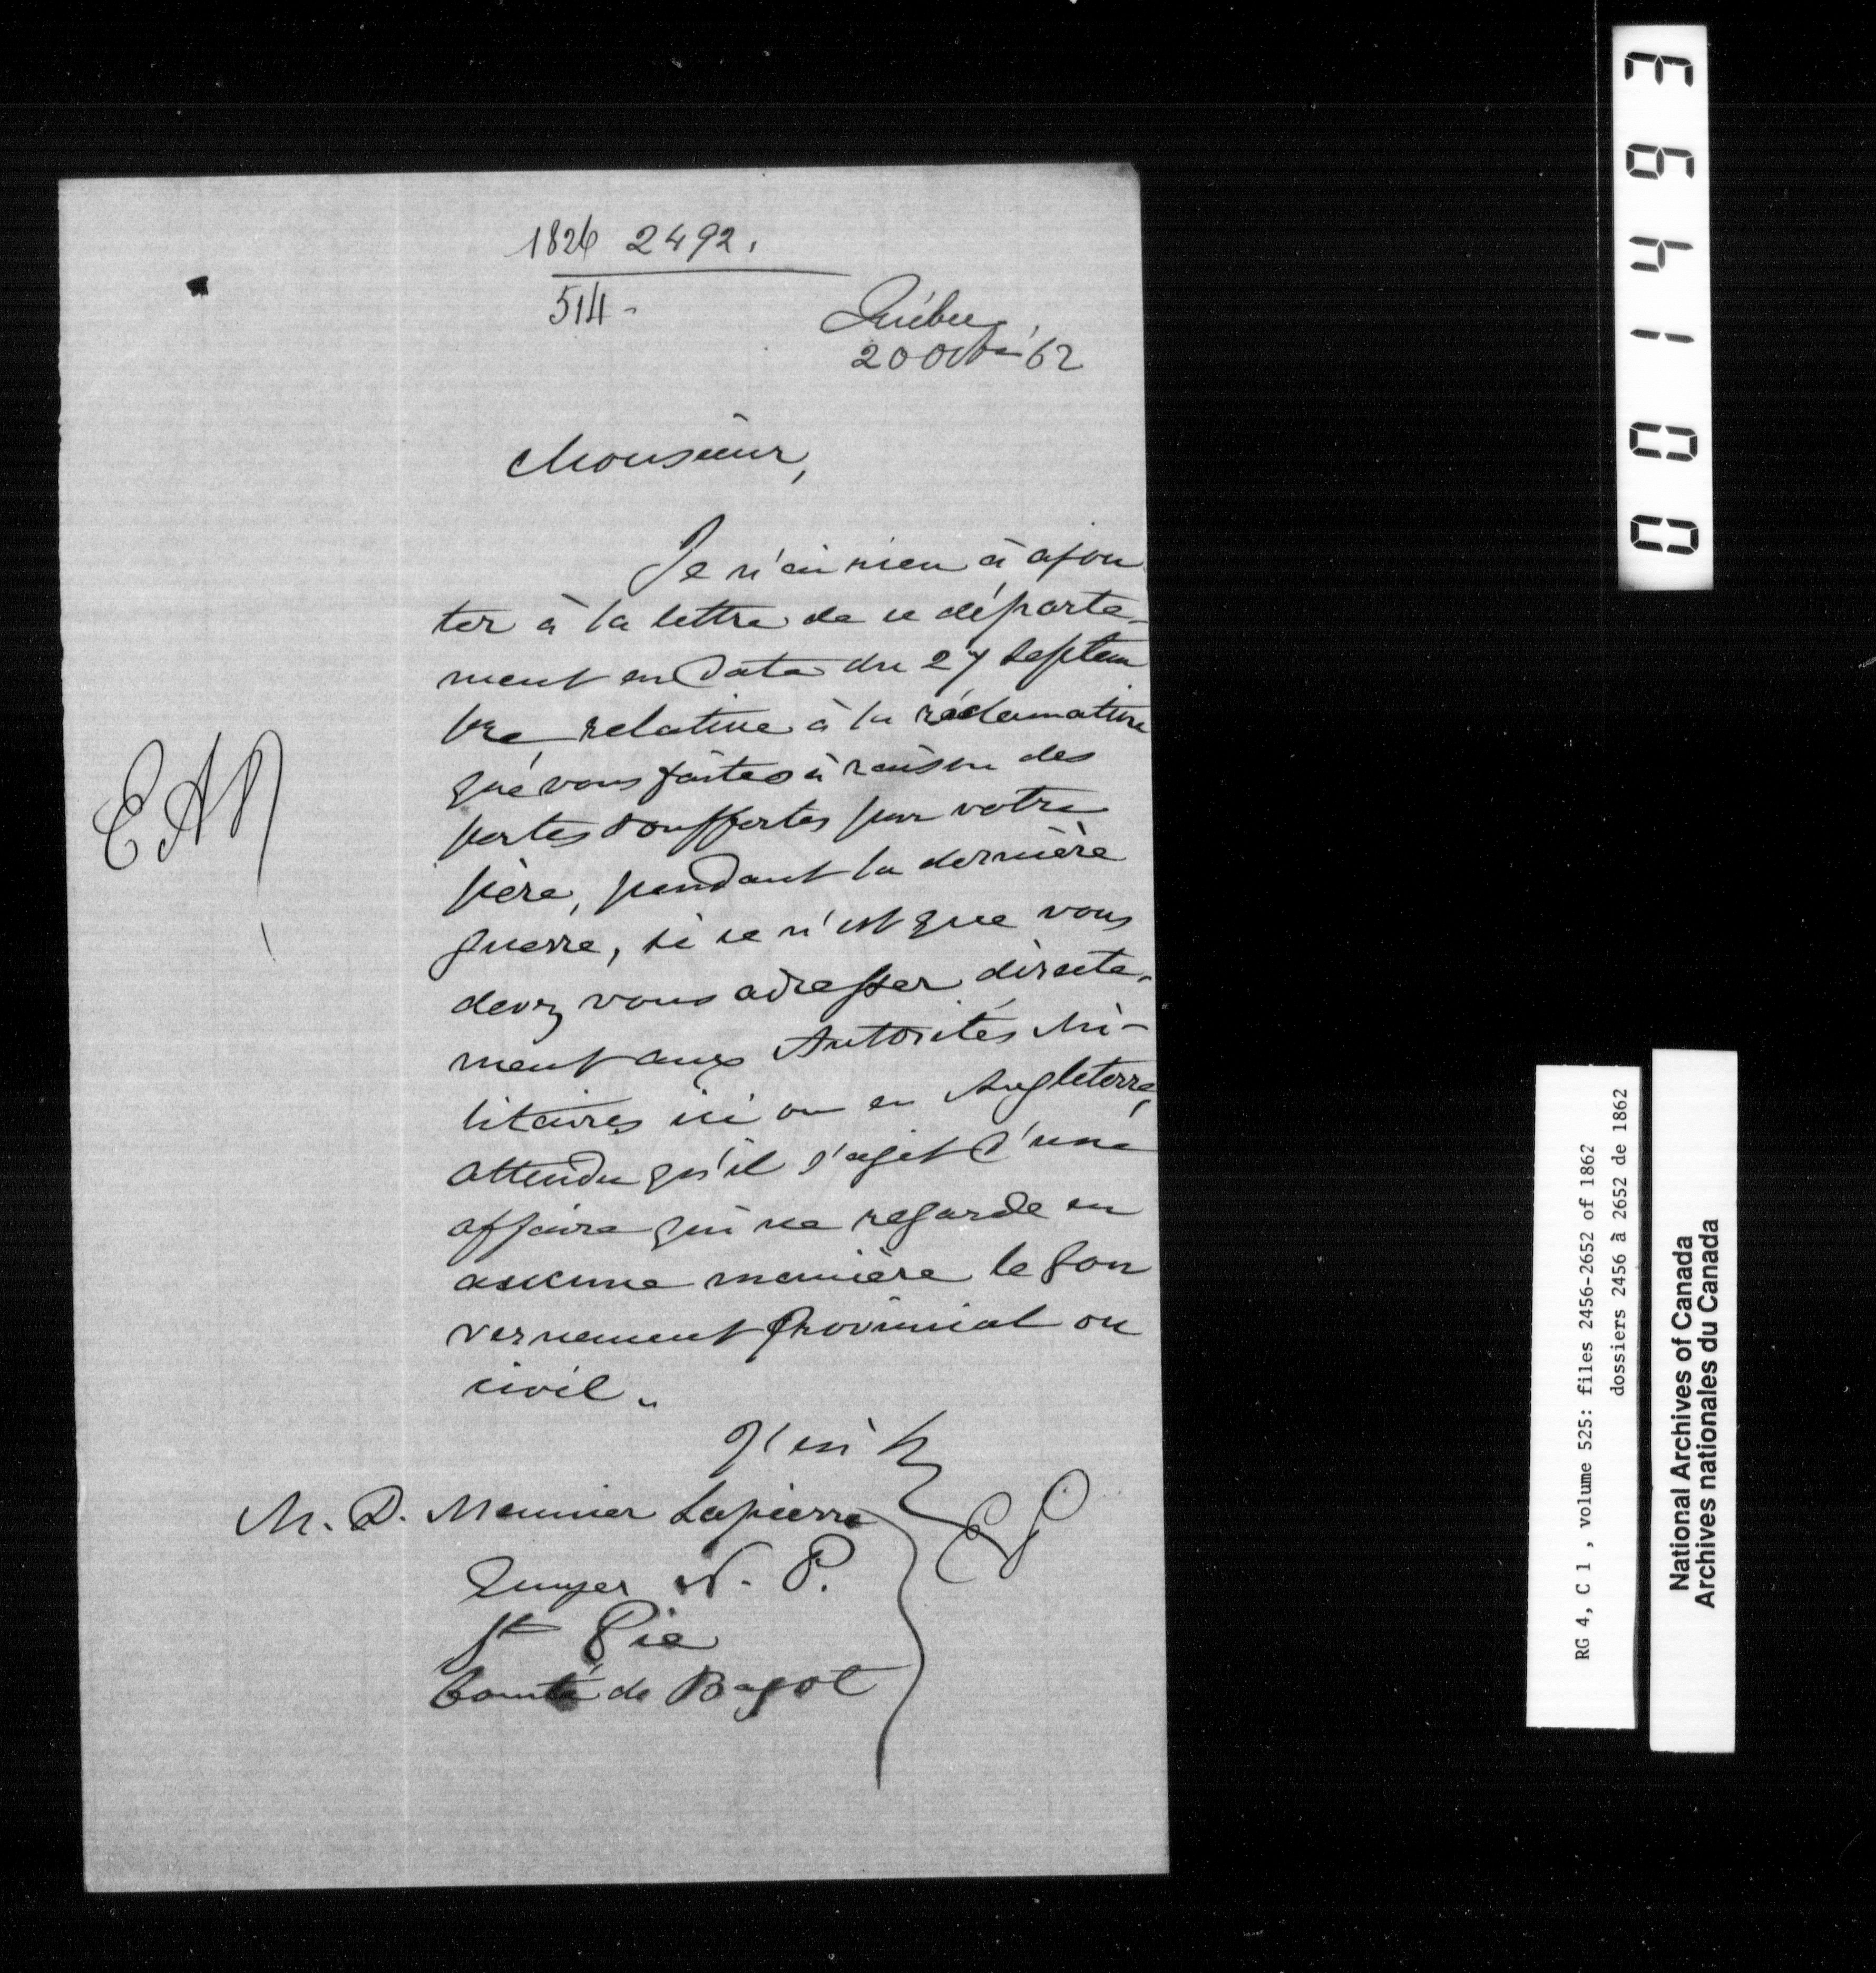 1826 2492.
514 -
Québec
20 Octbre '62
Monsieur,
Je n'ai rien à ajou
ter à la lettre de ce départe-
ment en date du 27 Septem
bre relative à la réclamation
que vous faites à raison des
pertes souffertes par votre
père, pendant la dernière
guerre, si ce n'est que vous
devez vous adresser directe-
ment aux Autorités Mi-
litaires ici ou en Angleterre,
attendu qu'il s'agit d'une
affaire qui ne regarde en
aucune manière le Gou
vernement Provincial ou
civil.
J'ai
M. D. Meunier Lapierre
Ecuyer N. P.
St Pie
Comté de Bagot
004963
RG 4, C 1 , volume 525: files 2456-2652 of 1862
dossiers 2456 à 2652 de 1862
National Archives of Canada
Archives nationales du Canada